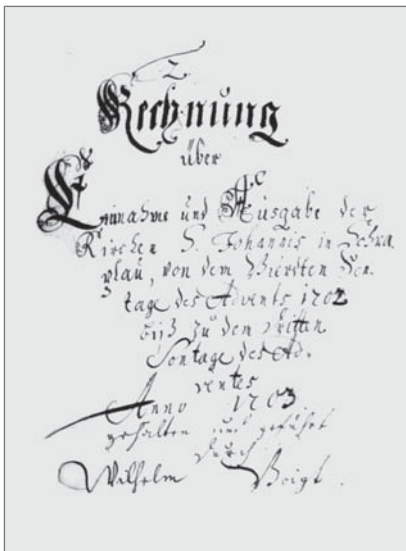 2.
Rechnung
über
Einnahme und Ausgabe der
Kirchen S. Johannis in Schra
plau, von dem Vierdten Son,
tage des Advents 1702
biß zu dem dritten
Sontage des Ad,
ventes
Anno 1703
gehalten und geführt
durch
Wilhelm Voigt.